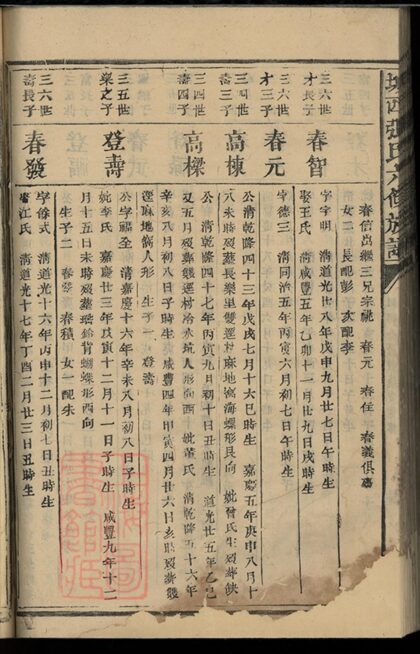 張氏六修族譜
春信出繼三兄宗祧 春元 春任 春義俱
女二 長配彭 次配李
三六世
才長子
春智
字字明 清道光廿八年戊申九月廿七日午時生
娶王氏 清咸豐五年乙卯十一月廿九日戌時生
三六世
才三子
春元
字德三 清同治五年丙寅六月初七日午時生
三四世
壽三子
高棟
公清乾隆四十三年戊戌七月十六巳時生 嘉慶五年庚申八月十
八未時歿葬長樂里雙逕村麻地窩海螺形艮向 妣曾氏生歿葬缺
三四世
壽四子
高樑
公清乾隆四十七年丙寅九月初十日丑時生 道光廿五年乙巳
又五月歿壽 逕村冷水坑人形向酉 妣董氏 清乾隆五十六年
辛亥八月初八日子時生 咸豐四年甲寅四月廿六日亥時歿葬雙
逕麻地窩人形 生子一 登壽
三五世
樑之子
登壽
公字福全 清嘉慶十六年辛未八月初八日子時生
妣李氏 嘉慶廿三年戊寅十二月十一日子時生 咸豐九年十二
月十五日未時歿葬 鈴背蝴蝶形酉向
生子二 春發 春積 女一配朱
三六世
壽長子
春發
字餘式 清道光十六年丙申十二月初七日丑時生
江氏 清道光十七年丁酉二月廿三日丑時生